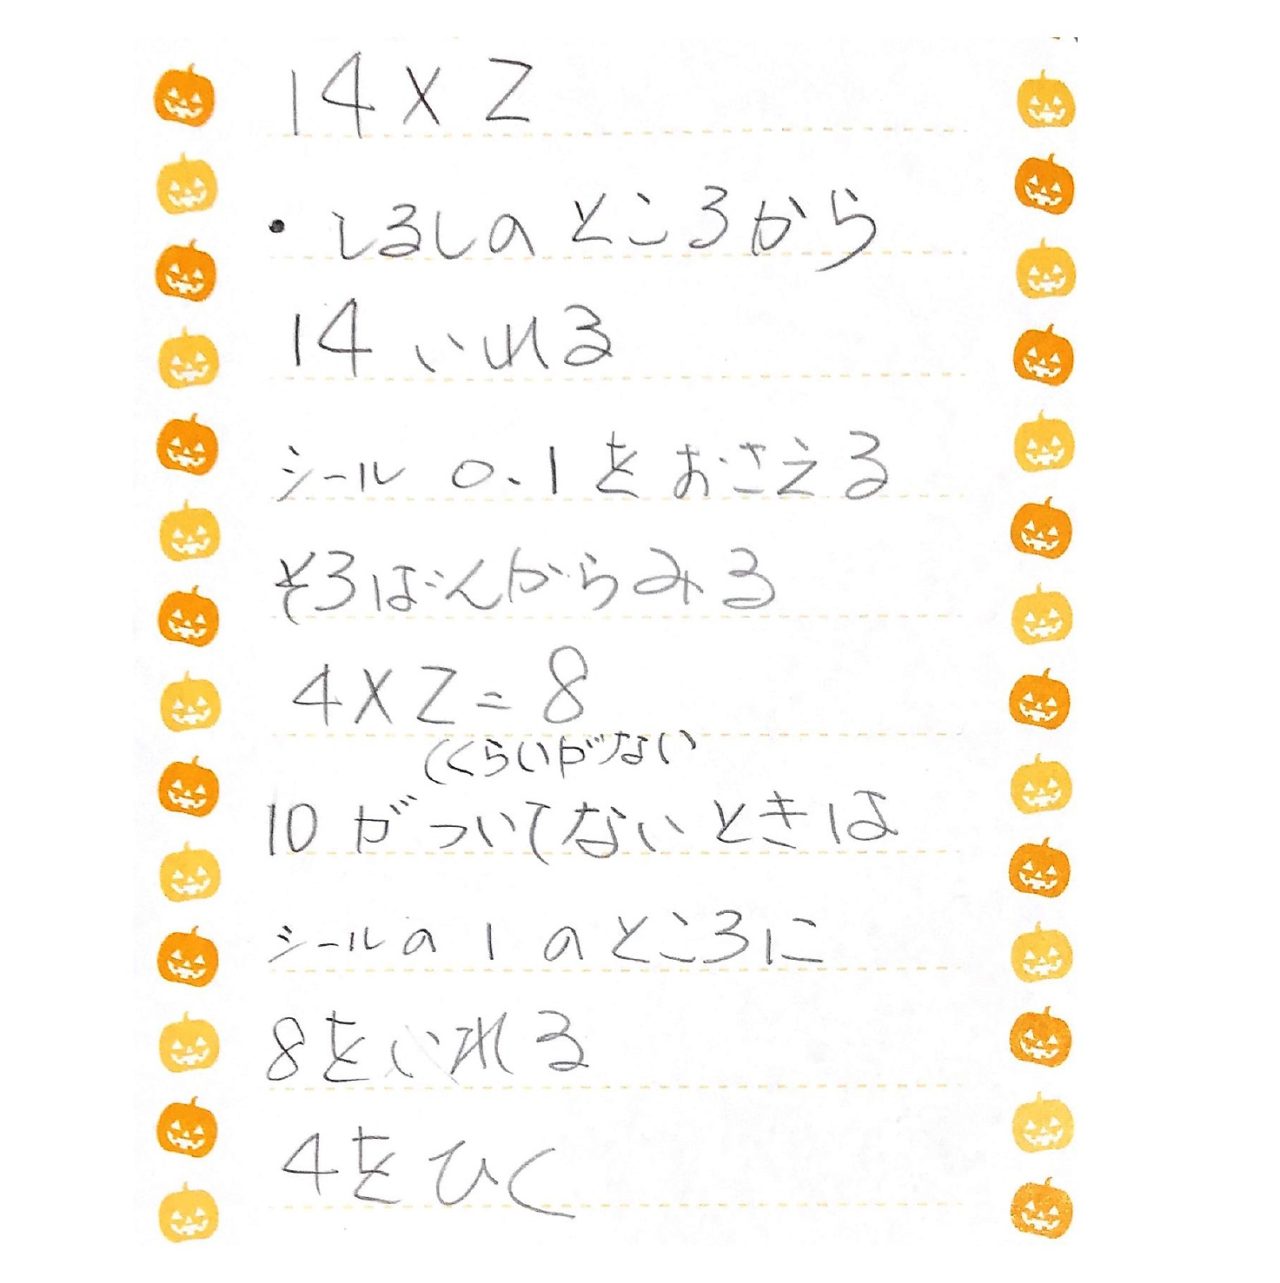 14×2
・しるしのところから
14いれる
シール 0.1をおさえる
そろばんからみる
4×2=8
(くらいがない
10がついてないときは
シールの1のところに
8をいれる
4をひく